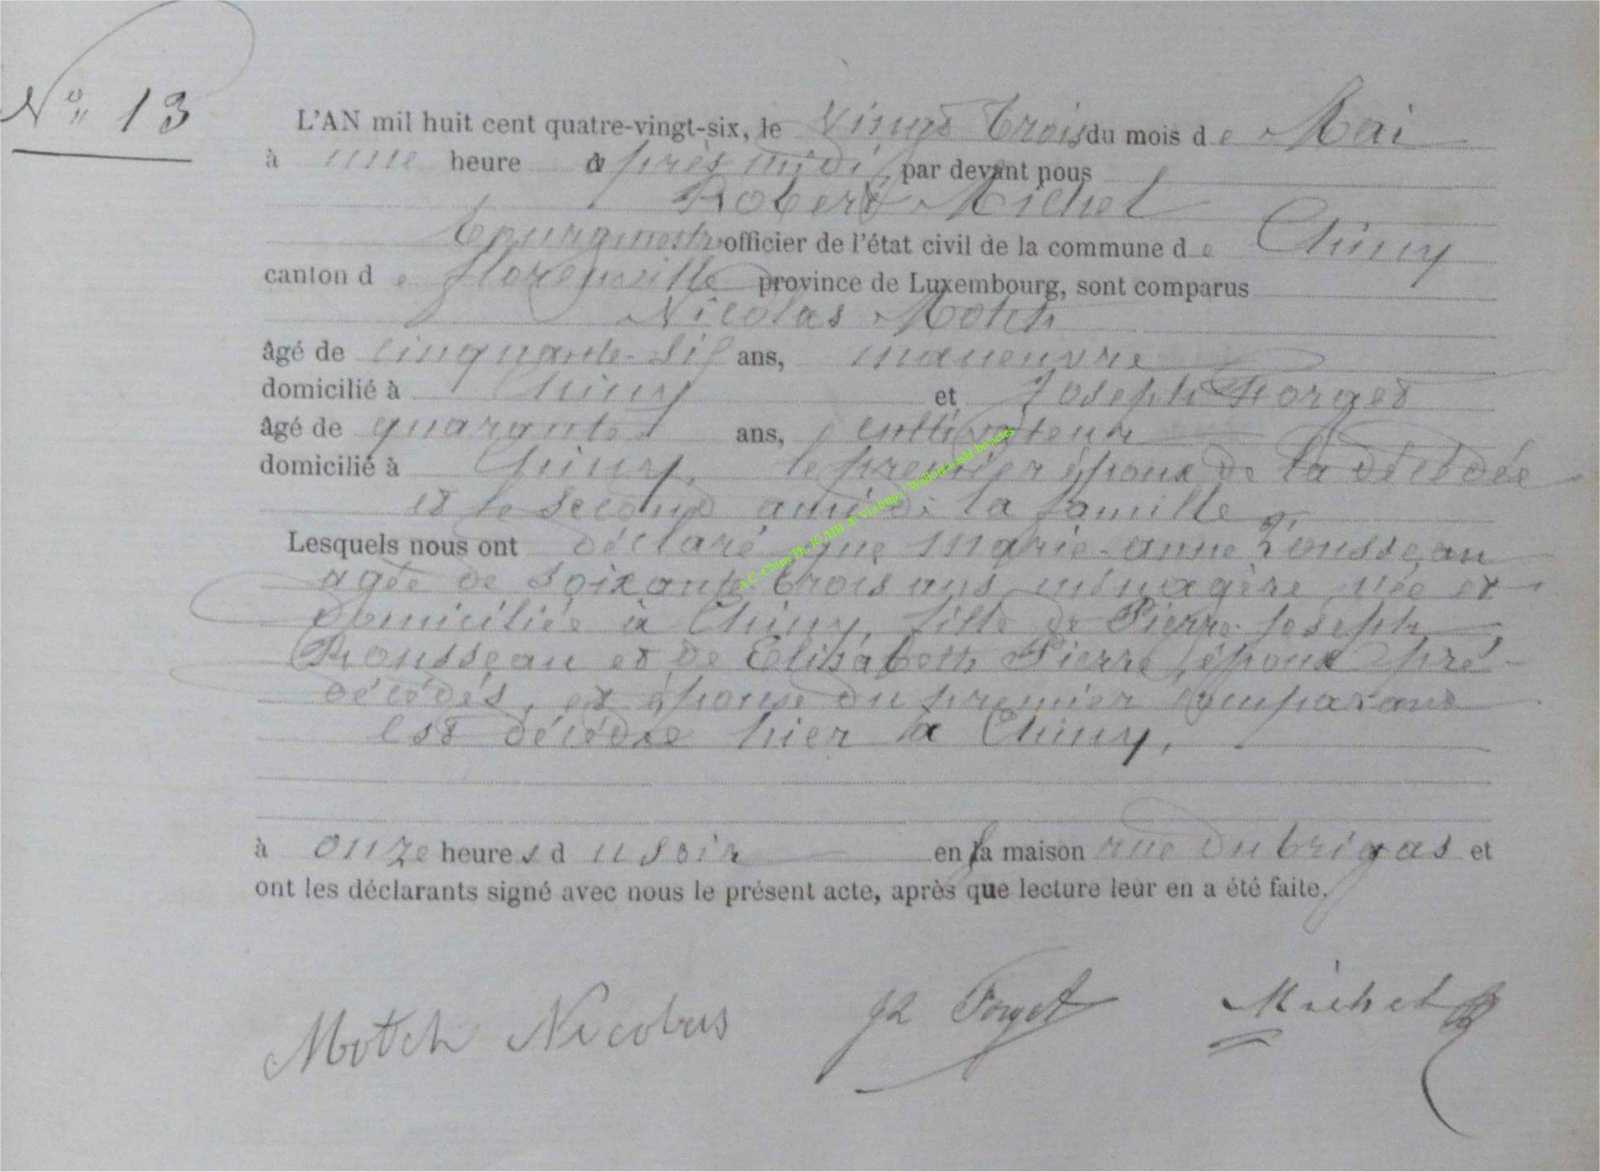 N° 13
L'AN mil huit cent quatre-vingt-six, le vingt trois du mois de Mai
à une heure après midi, par devant nous
Robert Michel
bourgmestre officier de l'état civil de la commune de Chiny
canton de florenville province de Luxembourg, sont comparus
Nicolas Motch
âgé de cinquante-six ans, manoeuvre
domicilié à Chiny et Joseph Forget
âgé de quarante ans, cultivateur
domicilié à Chiny, le premier époux de la décédée
et le second ami de la famille,
Lesquels nous ont déclaré que marie-anne Rousseau
agée de soixante trois ans ménagère née et
domiciliée à Chiny, fille de Pierre-Joseph
Rousseau et de Elisabeth Pierre, époux pré-
décédés, et épouse du premier comparant
est décédée hier à Chiny,
à onze heures du soir en sa maison rue du brigas et
ont les déclarants signé avec nous le présent acte, après que lecture leur en a été faite.
Motch Nicolas Forget Michel